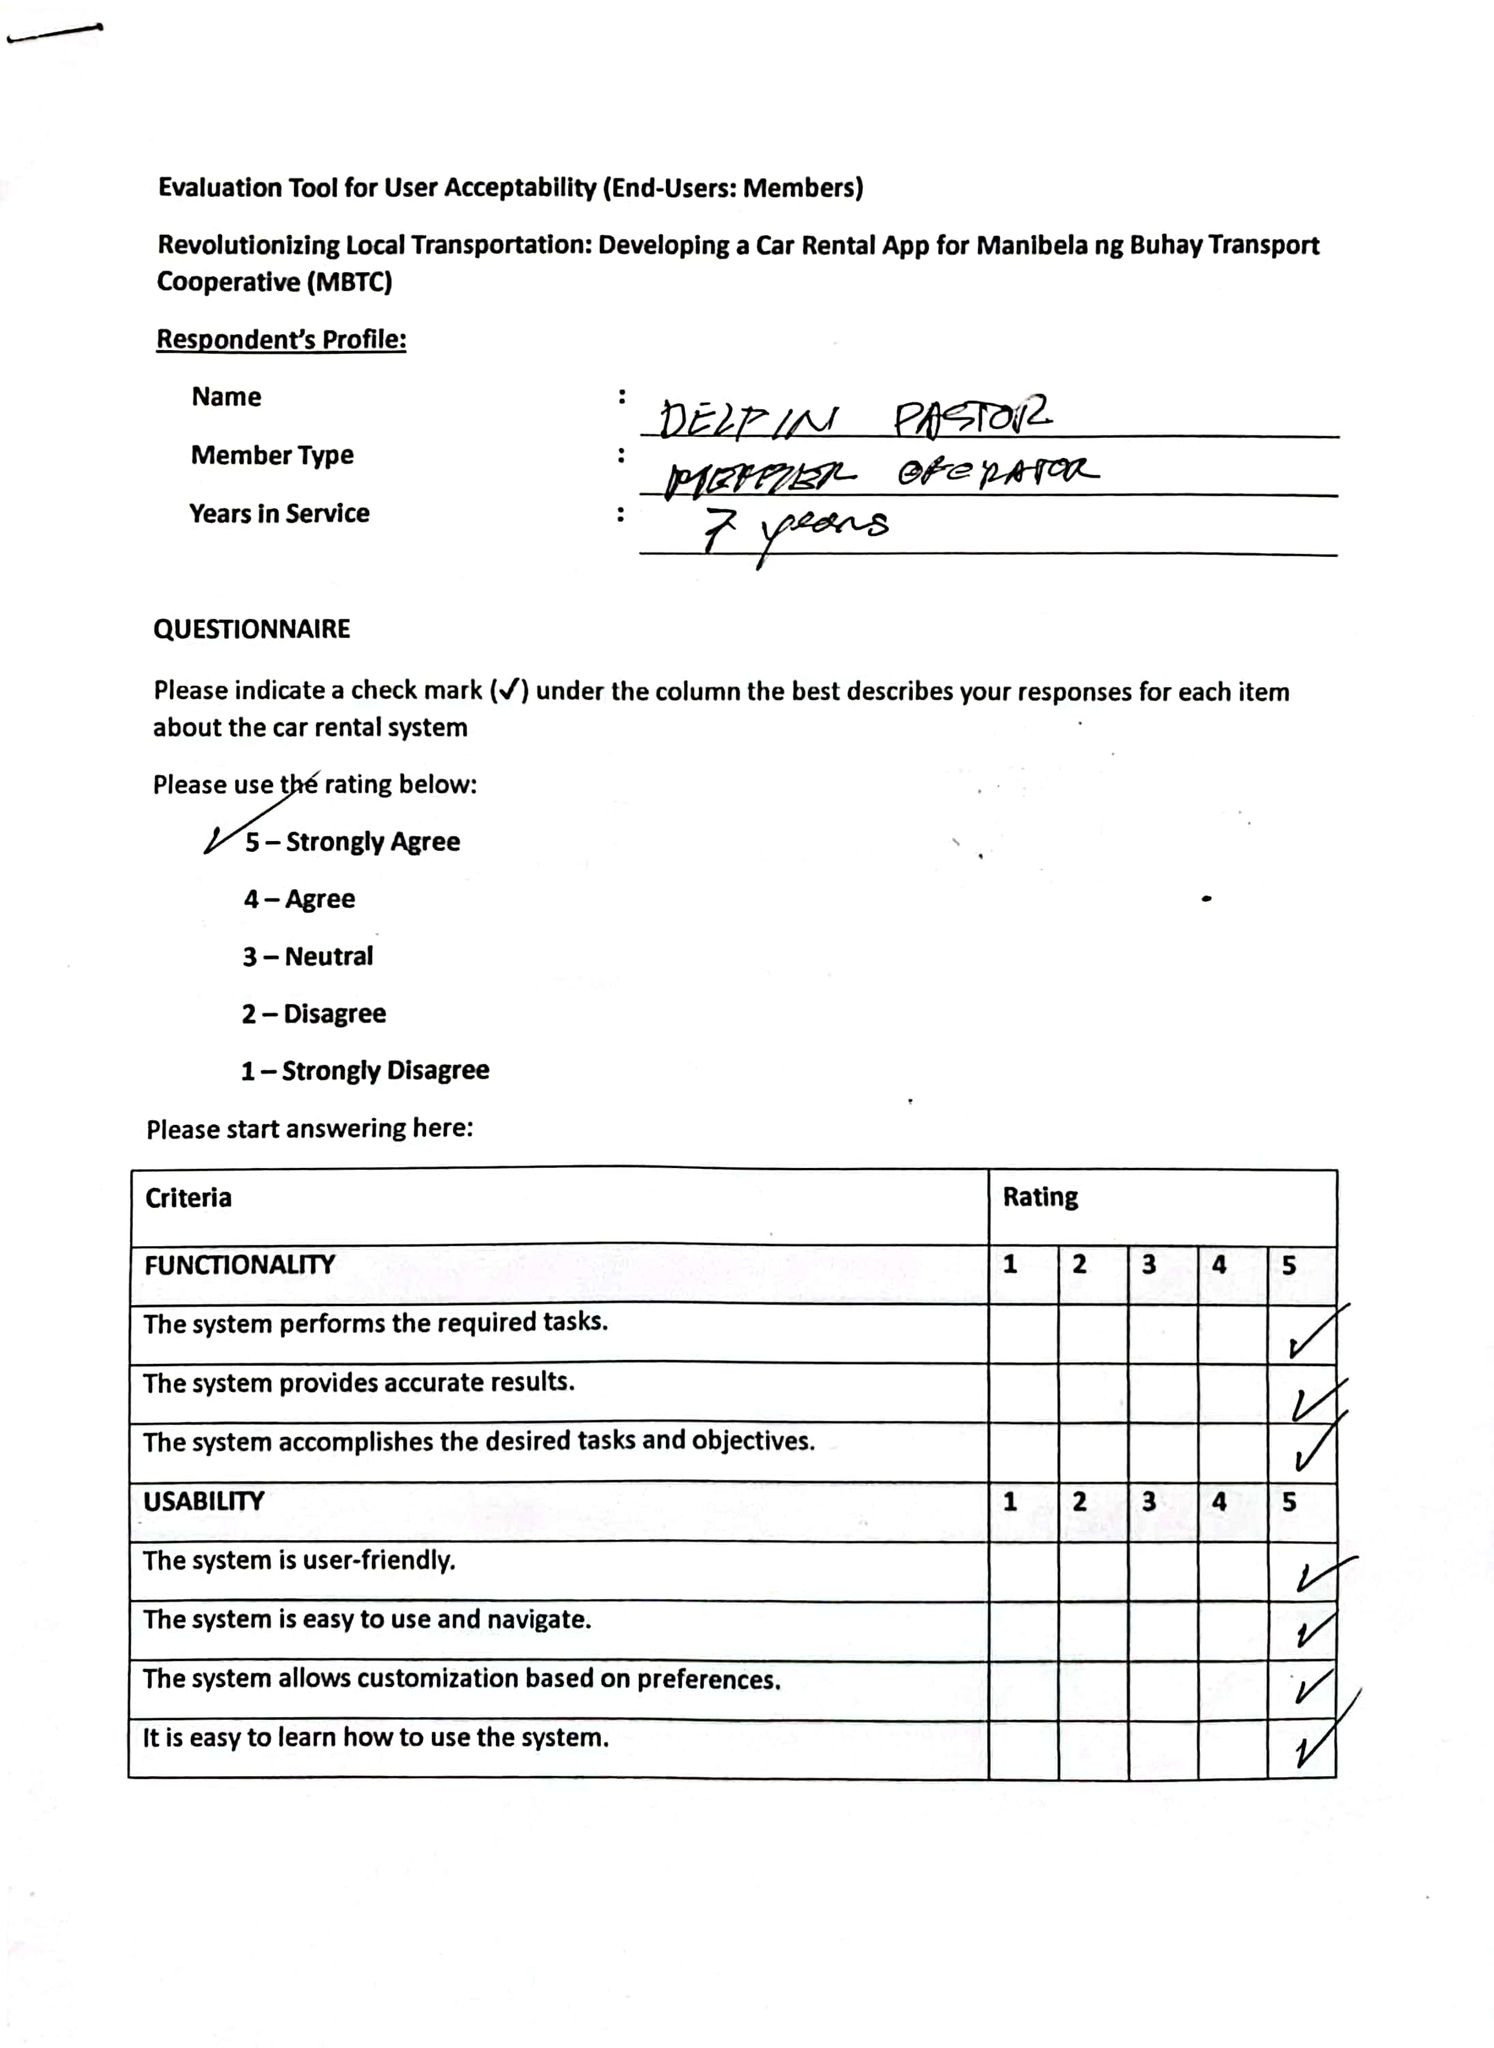 Evaluation Tool for User Acceptability (End-Users: Members)
Revolutionizing Local Transportation: Developing a Car Rental App for Manibela ng Buhay Transport
Cooperative (MBTC)
Respondent's Profile:
Name : DELPIN PASTOR
Member Type : MEMBER OPERATOR
Years in Service : 7 years
QUESTIONNAIRE
Please indicate a check mark (✓) under the column the best describes your responses for each item
about the car rental system
Please use the rating below:
✓ 5 – Strongly Agree
4 – Agree
3 – Neutral
2 – Disagree
1 – Strongly Disagree
Please start answering here:
Criteria Rating
FUNCTIONALITY 1 2 3 4 5
The system performs the required tasks. ✓
The system provides accurate results. ✓
The system accomplishes the desired tasks and objectives. ✓
USABILITY 1 2 3 4 5
The system is user-friendly. ✓
The system is easy to use and navigate. ✓
The system allows customization based on preferences. ✓
It is easy to learn how to use the system. ✓